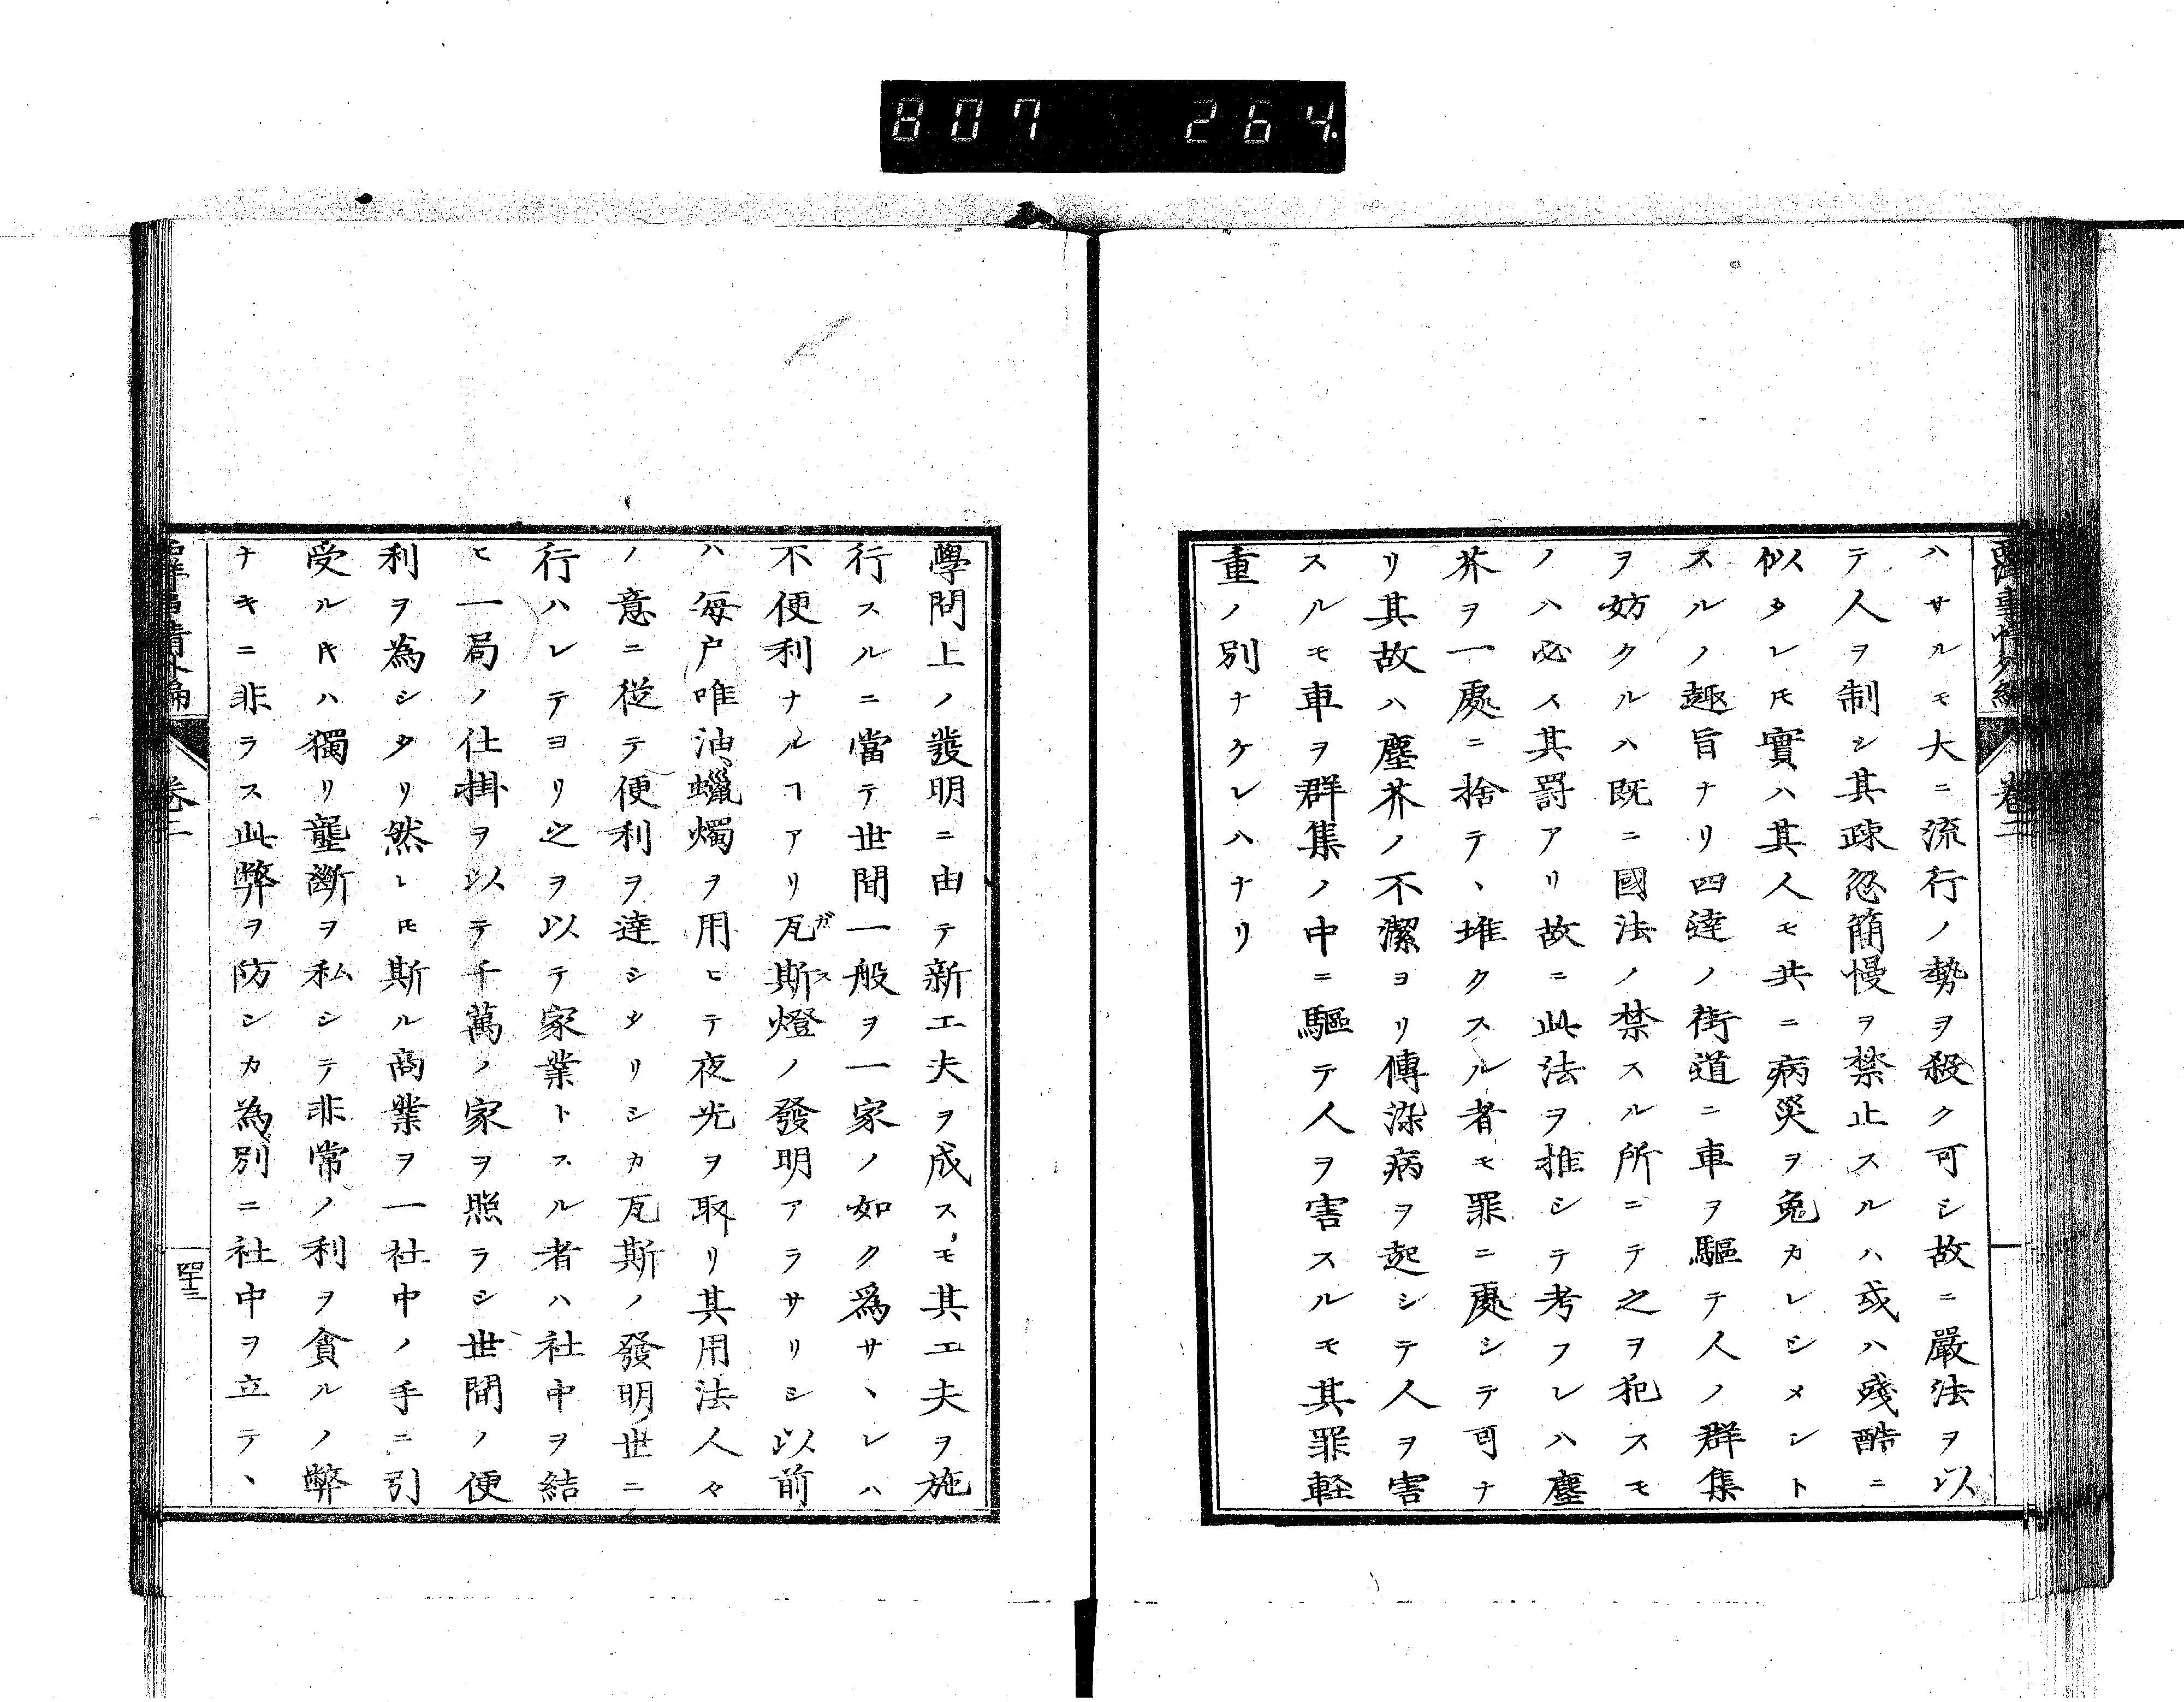 807 264
西洋事情外編 卷二
ハサルモ大ニ流行ノ勢ヲ殺ク可シ故ニ嚴法ヲ以
テ人ヲ制シ其疎忽簡慢ヲ禁止スルハ或ハ殘酷ニ
似タレ𪜈實ハ其人モ共ニ病災ヲ免カレシメントスルノ趣旨ナリ四達ノ街道ニ車ヲ驅テ人ノ群集
ヲ妨クルハ既ニ國法ノ禁スル所ニテ之ヲ犯スモ
ノハ必ス其罰アリ故ニ此法ヲ推シテ考フレハ塵
芥ヲ一處ニ捨テヽ堆クスル者モ罪ニ處シテ可ナ
リ其故ハ塵芥ノ不潔ヨリ傳染病ヲ起シテ人ヲ害
スルモ車ヲ群集ノ中ニ驅テ人ヲ害スルモ其罪軽
重ノ別ナケレハナリ
學問上ノ發明ニ由テ新工夫ヲ成スモ其工夫ヲ施
行スルニ當テ世間一般ヲ一家ノ如ク爲サヽレハ
不便利ナルヿアリ瓦斯燈ノ發明アラサリシ以前
ガス
ハ每戸唯油蠟燭ヲ用ヒテ夜光ヲ取リ其用法人々
ノ意ニ從テ便利ヲ達シタリシカ瓦斯ノ發明世ニ
行ハレテヨリ之ヲ以テ家業トスル者ハ社中ヲ結
ヒ一局ノ仕掛ヲ以テ千萬ノ家ヲ照ラシ世間ノ便
利ヲ為シタリ然レ𪜈斯ル商業ヲ一社中ノ手ニ引
受ルキハ獨リ壟斷ヲ私シテ非常ノ利ヲ貪ルノ弊
ナキニ非ラス此弊ヲ防シカ為別ニ社中ヲ立テヽ
西洋事情外編 卷二 四十三